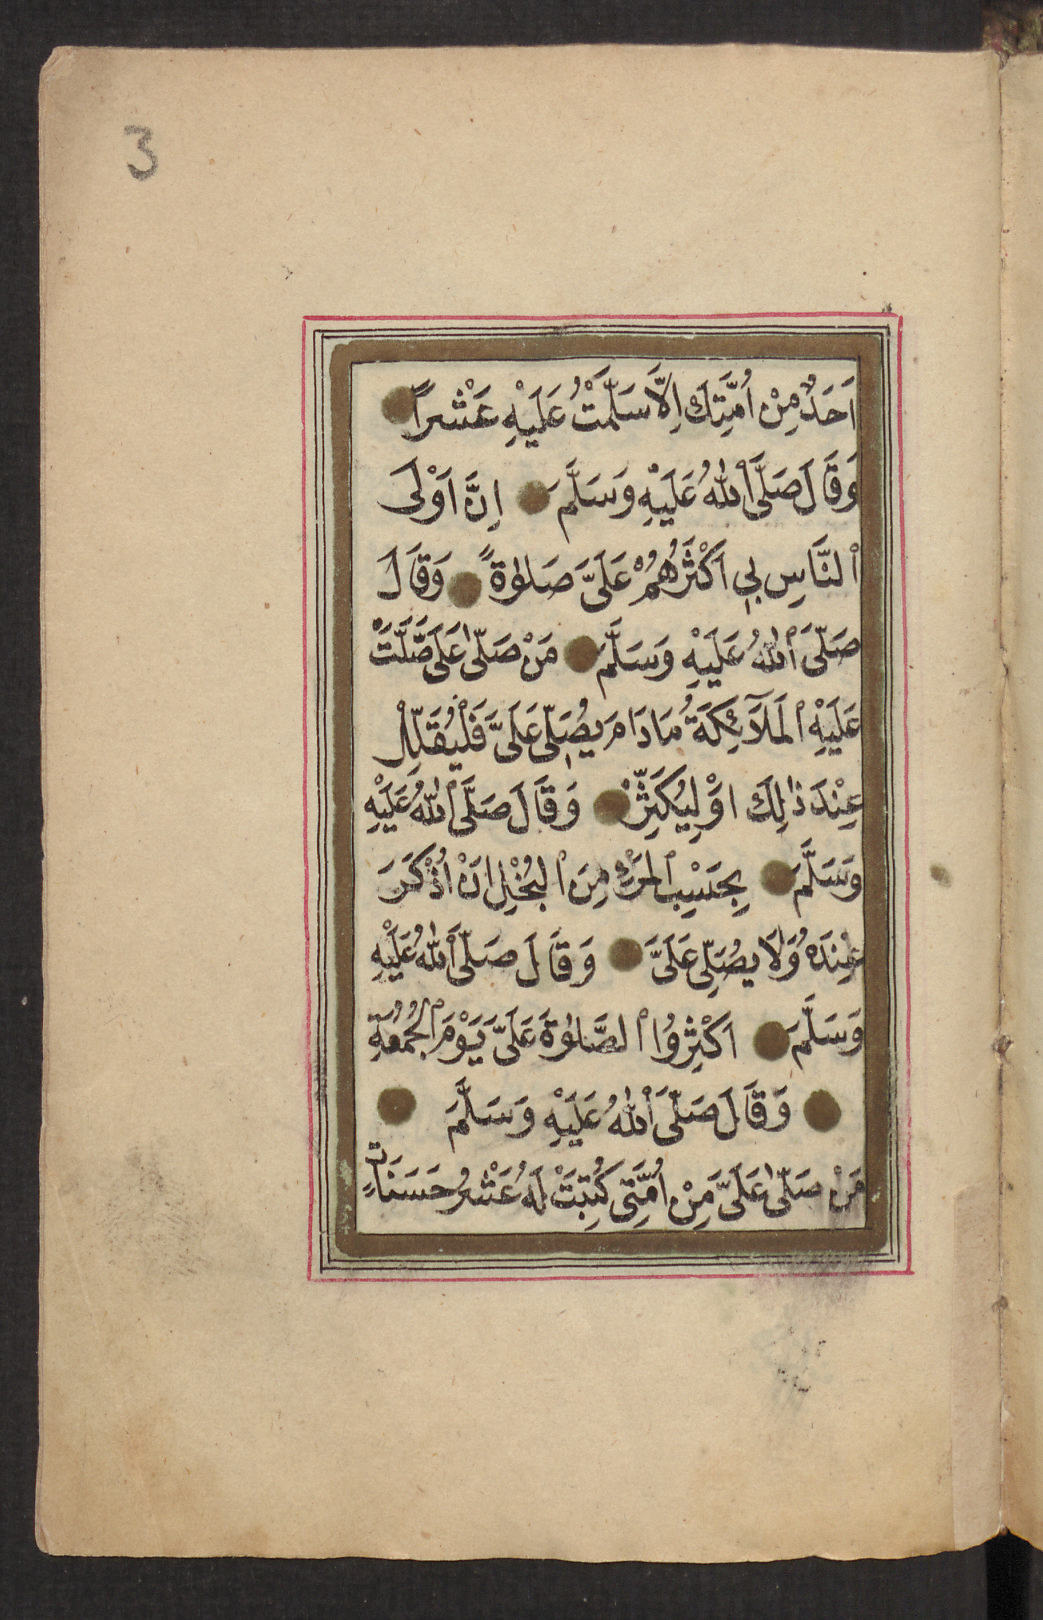 3
اَحَدٌ مِنْ اُمَّتِكَ اِلَّا سَلَّمْتُ عَلَيْهِ عَشْراً
وَقَالَ صَلَّى ٱللّٰهُ عَلَيْهِ وَسَلَّمَ اِنَّ اَوْلَى
ٱلنَّاسِ بِي اَكْثَرُهُمْ عَلَىَّ صَلٰوةً وَقَالَ
صَلَّى ٱللّٰهُ عَلَيْهِ وَسَلَّمَ مَنْ صَلّٰى عَلَىَّ صَلَّتْ
عَلَيْهِ ٱلْمَلَآئِكَةُ مَادَامَ يُصَلِّى عَلَىَّ فَلْيُقَلِّلْ
عِنْدَ ذٰلِكَ اَوْ لِيُكَثِّرْ وَقَالَ صَلَّى ٱللّٰهُ عَلَيْهِ
وَسَلَّمَ بِحَسْبِ ٱلْمَرْءِ مِنَ ٱلْبُخْلِ اَنْ اُذْكَرَ
عِنْدَهُ وَلَا يُصَلِّى عَلَىَّ وَقَالَ صَلَّى ٱللّٰهُ عَلَيْهِ
وَسَلَّمَ اَكْثِرُوا ٱلصَّلٰوةَ عَلَىَّ يَوْمَ ٱلْجُمُعَةِ
وَقَالَ صَلَّى ٱللّٰهُ عَلَيْهِ وَسَلَّمَ
مَنْ صَلّٰى عَلَىَّ مِنْ اُمَّتِى كُتِبَتْ لَهُ عَشْرُ حَسَنَاتٍ